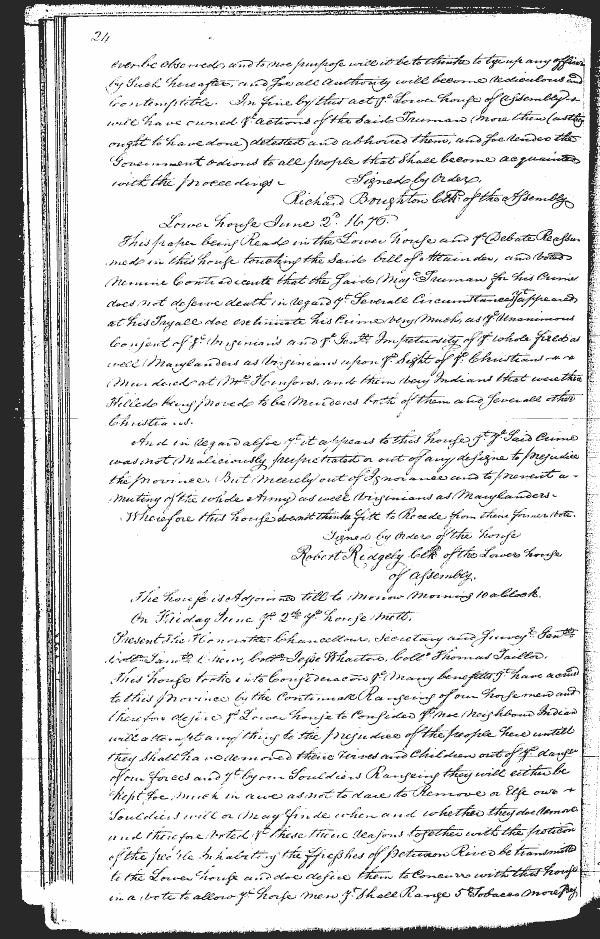 24
ever be observed and to noe purpose will it be to thinke to tye up any
by Such hereafter, and soe all authority will become rediculous and
Contemptible. In fine by this act ye Lower house of assembly
will have owned ye actions of the Said Truman more then (as they
ought to have done) detested and abhorred them, and soe render the
Government odious to all people that Shall become acquainted
with the proceedings. Signed by Order,
Richard Boughton Clk of the assembly
Lower house June 2d. 1676.
This paper being Read in the Lower house and ye Debate
med in this house touching the Said bill of Attainder, and voted
Nemine Contradicente that the Said Majr Truman for his Crime
does not deserve death in regard yt Severall Circumstances yt appeared
at his Tryall doe extenuate his Crime very much, as ye Unanimous
Consent of ye Virginians and ye Genll Impetuosity of ye whole field as
well Marylanders as Virginians upon ye Sight of ye Christians
Murdered at Mr Hinsons, and them very Indians that were there
Killed being proved to be Murderers both of them and severall other
Christians.
And in regard alsoe yt it appears to this house yt ye Said Crime
was not Maliciously perpetrated or out of any designe to prejudice
the Province But meerely out of Ignorance and to prevent a
mutiny of the whole Army as well Virginians as Marylanders
Wherefore this house doe not thinke fitt to Recede from there former vote.
Signed by Order of the house
Robert Ridgely Clk of the Lower house
of assembly.
The house is Adjourned till to Morrow Morning 10 aClock.
On Friday June ye 2d ye house mett.
Present The Honorable Chancellour, Secretary and Survey'r Genll
Coll Saml Chew, Coll Jesse Wharton, Coll Thomas Taillor.
This house tooke into Consideracon ye Many benefitts yt have
to this Province by the Continuall Rangeing of our horsemen and
therefore desire ye Lower house to Consider yt noe Neighbour Indian
will attempt any thing to the Prejudice of the people here untill
they Shall have removed their Wives and Children out of ye danger
of our forces and yt by our Souldiers Rangeing they will either be
kept soe much in awe as not to dare to Remove or Else our
Souldiers will or may finde when and whether they doe remove
and therefore voted yt these there reasons together with the petition
of the people Inhabiting the ffreshes of Petuxen River be transmitted
to the Lower house and doe desire them to Concurr with this house
in a vote to allow ye horse men yt Shall Range 5 lb Tobacco more